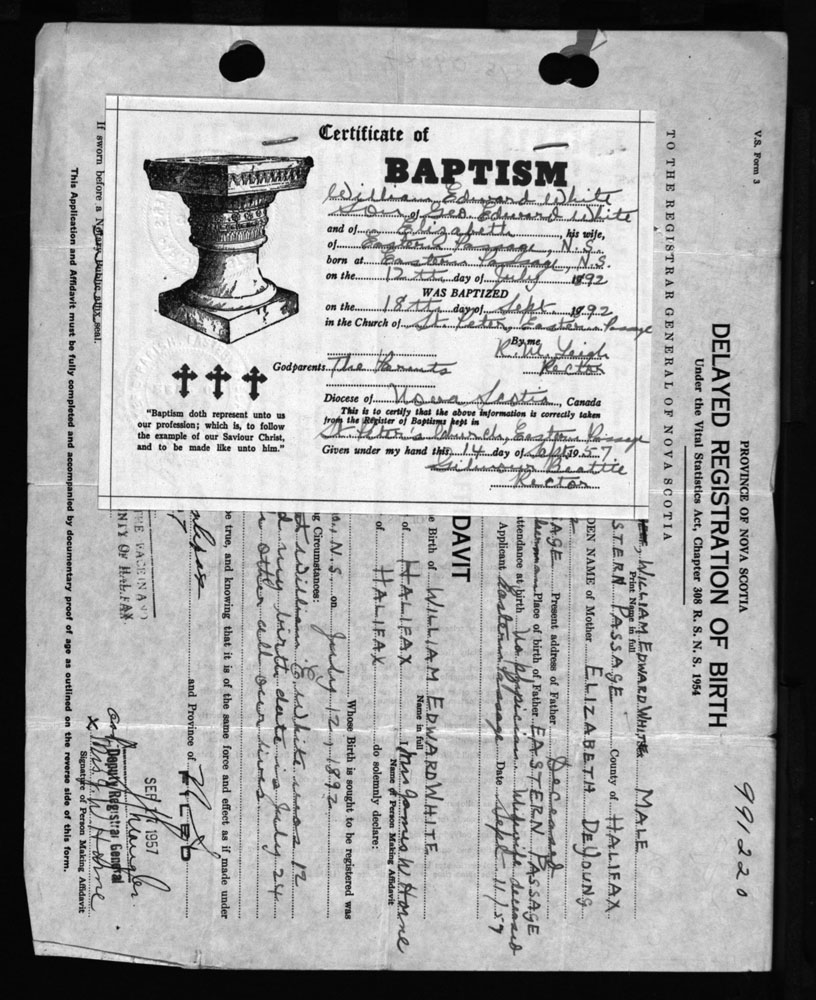 Certificate of
BAPTISM
William Edward White
Son of Geo. Edward White
and of Elizabeth, his wife,
of Eastern Passage, N.S.
born at Eastern Passage, N.S.
on the 12th day of July 1892
WAS BAPTIZED
on the 18th day of Sept 1892
in the Church of St. Peter, Eastern Passage
By me,
Rector
Godparents The Parents
Diocese of Nova Scotia, Canada
This is to certify that the above information is correctly taken
from the Register of Baptisms kept in
St. Peter's Church, Eastern Passage
Given under my hand this 14 day of Sept 1957
Beattie
Rector
"Baptism doth represent unto us
our profession; which is, to follow
the example of our Saviour Christ,
and to be made like unto him."
V.S. Form 3
991220
PROVINCE OF NOVA SCOTIA
DELAYED REGISTRATION OF BIRTH
Under the Vital Statistics Act, Chapter 308 R. S. N. S. 1954
TO THE REGISTRAR GENERAL OF NOVA SCOTIA
WILLIAM EDWARD WHITE MALE
Print Name in full
STERN PASSAGE County of HALIFAX
DEN NAME of Mother ELIZABETH DEYOUNG
AGE Present address of Father Deceased
Place of birth of Father EASTERN PASSAGE
attendance at birth No physician Midwife deceased
Applicant Eastern Passage Date Sept 11/57
DAVIT
e Birth of WILLIAM EDWARD WHITE
Name in full
of HALIFAX I Mrs James W. Horne
Name of Person Making Affidavit
of HALIFAX do solemnly declare:
Whose Birth is sought to be registered was
N.S. on July 12, 1892
g Circumstances:
t William E. White was 12
d my birth date is July 24
other all our lives
e true, and knowing that it is of the same force and effect as if made under
and Province of N.S.
FILED
SEP 1957
Deputy Registrar General
x Mrs. J. W. Horne
Signature of Person Making Affidavit
If sworn before a Notary Public affix seal.
This Application and Affidavit must be fully completed and accompanied by documentary proof of age as outlined on the reverse side of this form.